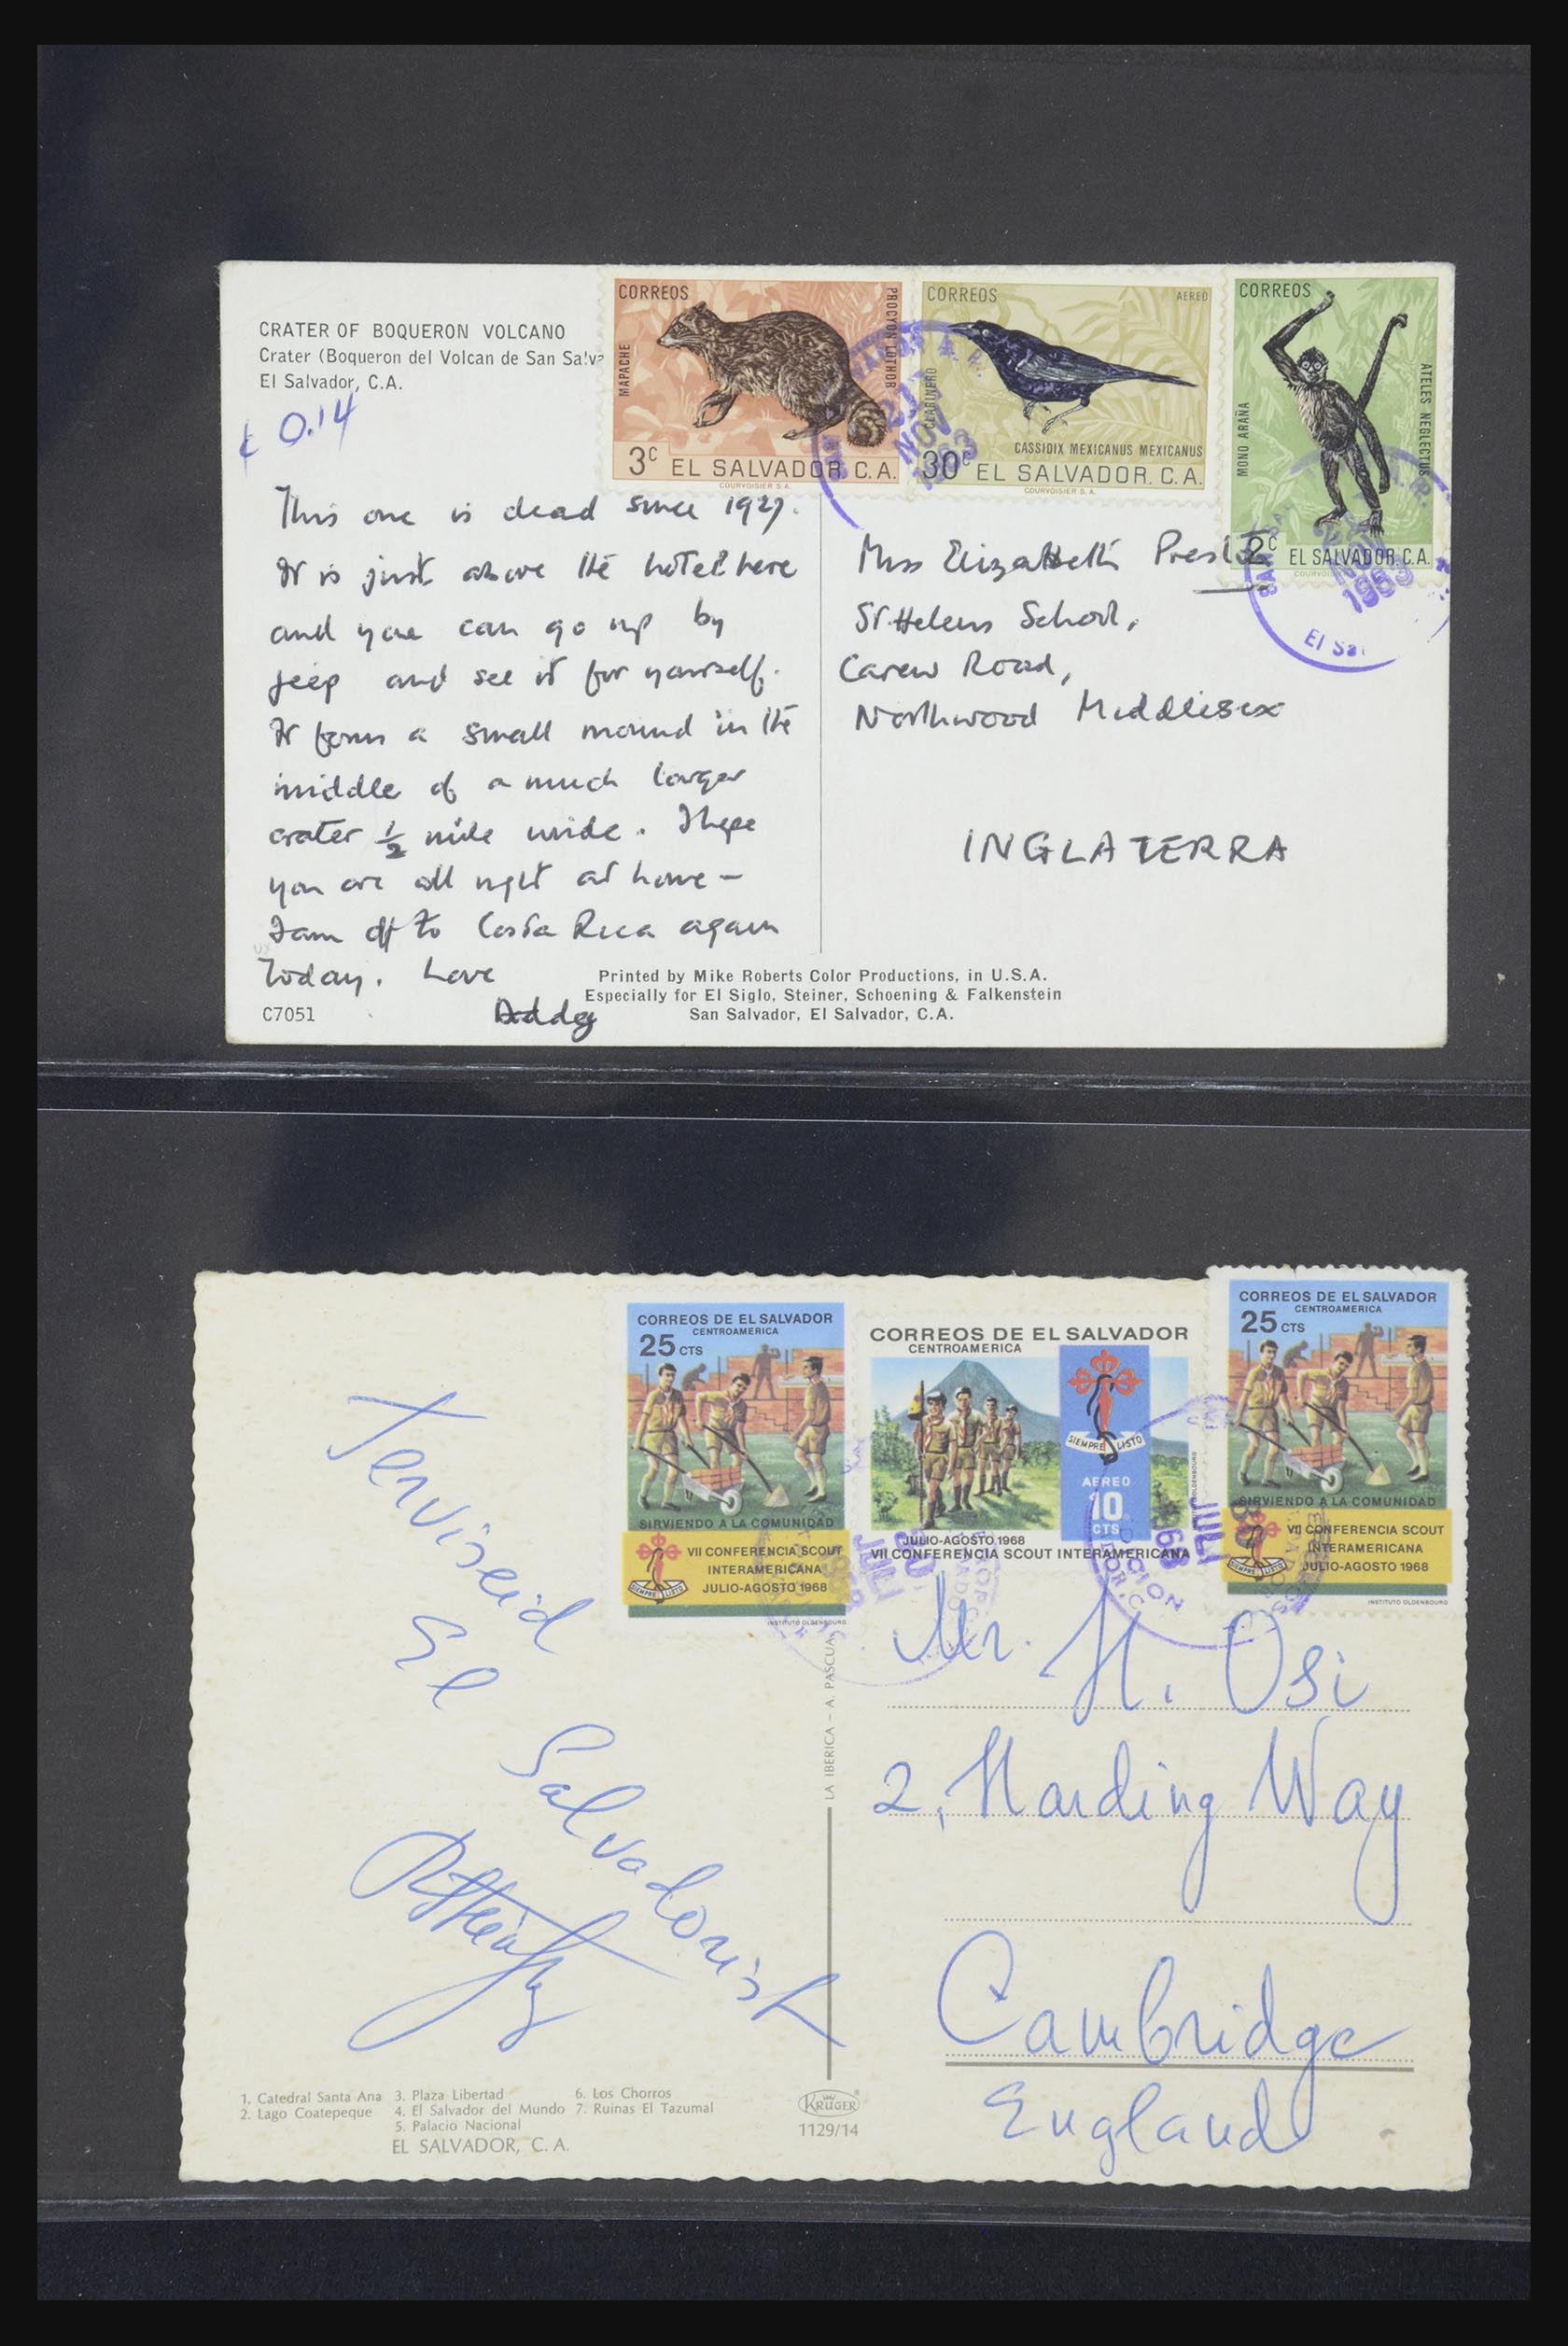 CRATER OF BOQUERON VOLCANO
Crater (Boqueron del Volcan de San Salva
El Salvador, C.A.
¢ 0.14
CORREOS
MAPACHE
PROCYON LOTHOR
3c EL SALVADOR C.A.
COURVOISIER S.A.
CORREOS
AEREO
CLARINERO
CASSIDIX MEXICANUS MEXICANUS
30c EL SALVADOR. C.A.
COURVOISIER S.A.
CORREOS
MONO ARAÑA
ATELES NEGLECTUS
2c EL SALVADOR C.A.
NOV
El Sal
This one is dead since 1927.
It is just above the hotel here
and you can go up by
jeep and see it for yourself.
It forms a small mound in the
middle of a much larger
crater ½ mile wide. I hope
you are all right at home –
I am off to Costa Rica again
today. Love
Daddy
Miss Elizabeth Preston
St. Helens School,
Carew Road,
Northwood Middlesex
INGLATERRA
C7051
Printed by Mike Roberts Color Productions, in U.S.A.
Especially for El Siglo, Steiner, Schoening & Falkenstein
San Salvador, El Salvador, C.A.
CORREOS DE EL SALVADOR
CENTROAMERICA
25 CTS
SIRVIENDO A LA COMUNIDAD
VII CONFERENCIA SCOUT
INTERAMERICANA
JULIO-AGOSTO 1968
SIEMPRE LISTO
INSTITUTO OLDENBOURG
CORREOS DE EL SALVADOR
CENTROAMERICA
SIEMPRE LISTO
AEREO
10
CTS
JULIO-AGOSTO 1968
VII CONFERENCIA SCOUT INTERAMERICANA
CORREOS DE EL SALVADOR
CENTROAMERICA
25 CTS
SIRVIENDO A LA COMUNIDAD
VII CONFERENCIA SCOUT
INTERAMERICANA
JULIO-AGOSTO 1968
SIEMPRE LISTO
INSTITUTO OLDENBOURG
Terviseid
El
Salvadorist
LA IBERICA – A. PASCUA
Mr. H. Osi
2, Harding Way
Cambridge
England
1. Catedral Santa Ana 3. Plaza Libertad 6. Los Chorros
2. Lago Coatepeque 4. El Salvador del Mundo 7. Ruinas El Tazumal
5. Palacio Nacional
EL SALVADOR, C. A.
KRÜGER
1129/14